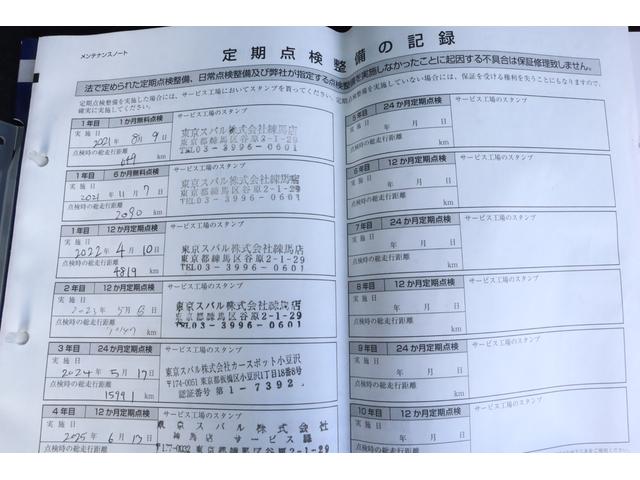 メンテナンスノート
定期点検整備の記録
法で定められた定期点検整備、日常点検整備及び弊社が指定する点検整備を実施しなかったことに起因する不具合は保証修理致しません。
定期点検整備を実施した場合には、サービス工場においてスタンプを貰ってください。
確実に実施してください。
定期点検整備を実施していない場合には、保証を受ける権利を失うことにもなりますので、
1年目 1か月無料点検 サービス工場のスタンプ
実施日
2021年 8月 9日
点検時の総走行距離
649 km
東京スバル株式会社練馬店
東京都練馬区谷原2-1-29
TEL03-3996-0601
1年目 6か月無料点検 サービス工場のスタンプ
実施日
2021年 11月 7日
点検時の総走行距離
2090 km
東京スバル株式会社練馬店
東京都練馬区谷原2-1-29
TEL03-3996-0601
1年目 12か月定期点検 サービス工場のスタンプ
実施日
2022年 4月 10日
点検時の総走行距離
4819 km
東京スバル株式会社練馬店
東京都練馬区谷原2-1-29
TEL03-3996-0601
2年目 12か月定期点検 サービス工場のスタンプ
実施日
2023年 5月 日
点検時の総走行距離
km
東京スバル株式会社練馬店
東京都練馬区谷原2-1-29
TEL03-3996-0601
3年目 24か月定期点検 サービス工場のスタンプ
実施日
2024年 5月 17日
点検時の総走行距離
15991 km
東京スバル株式会社カースポット小豆沢
〒174-0051 東京都板橋区小豆沢1丁目18番6号
認証番号 第1-7392
4年目 12か月定期点検 サービス工場のスタンプ
実施日
2025年 6月 13日
点検時の総走行距離
東京スバル株式会社
練馬店 サービス課
東京都練馬区谷原2-1-29
5年目 24か月定期点検 サービス工場のスタンプ
実施日
年 月 日
点検時の総走行距離
km
6年目 12か月定期点検 サービス工場のスタンプ
実施日
年 月 日
点検時の総走行距離
km
7年目 24か月定期点検 サービス工場のスタンプ
実施日
年 月 日
点検時の総走行距離
km
8年目 12か月定期点検 サービス工場のスタンプ
実施日
年 月 日
点検時の総走行距離
km
9年目 24か月定期点検 サービス工場のスタンプ
実施日
年 月 日
点検時の総走行距離
km
10年目 12か月定期点検 サービス工場のスタンプ
実施日
年 月 日
点検時の総走行距離
km